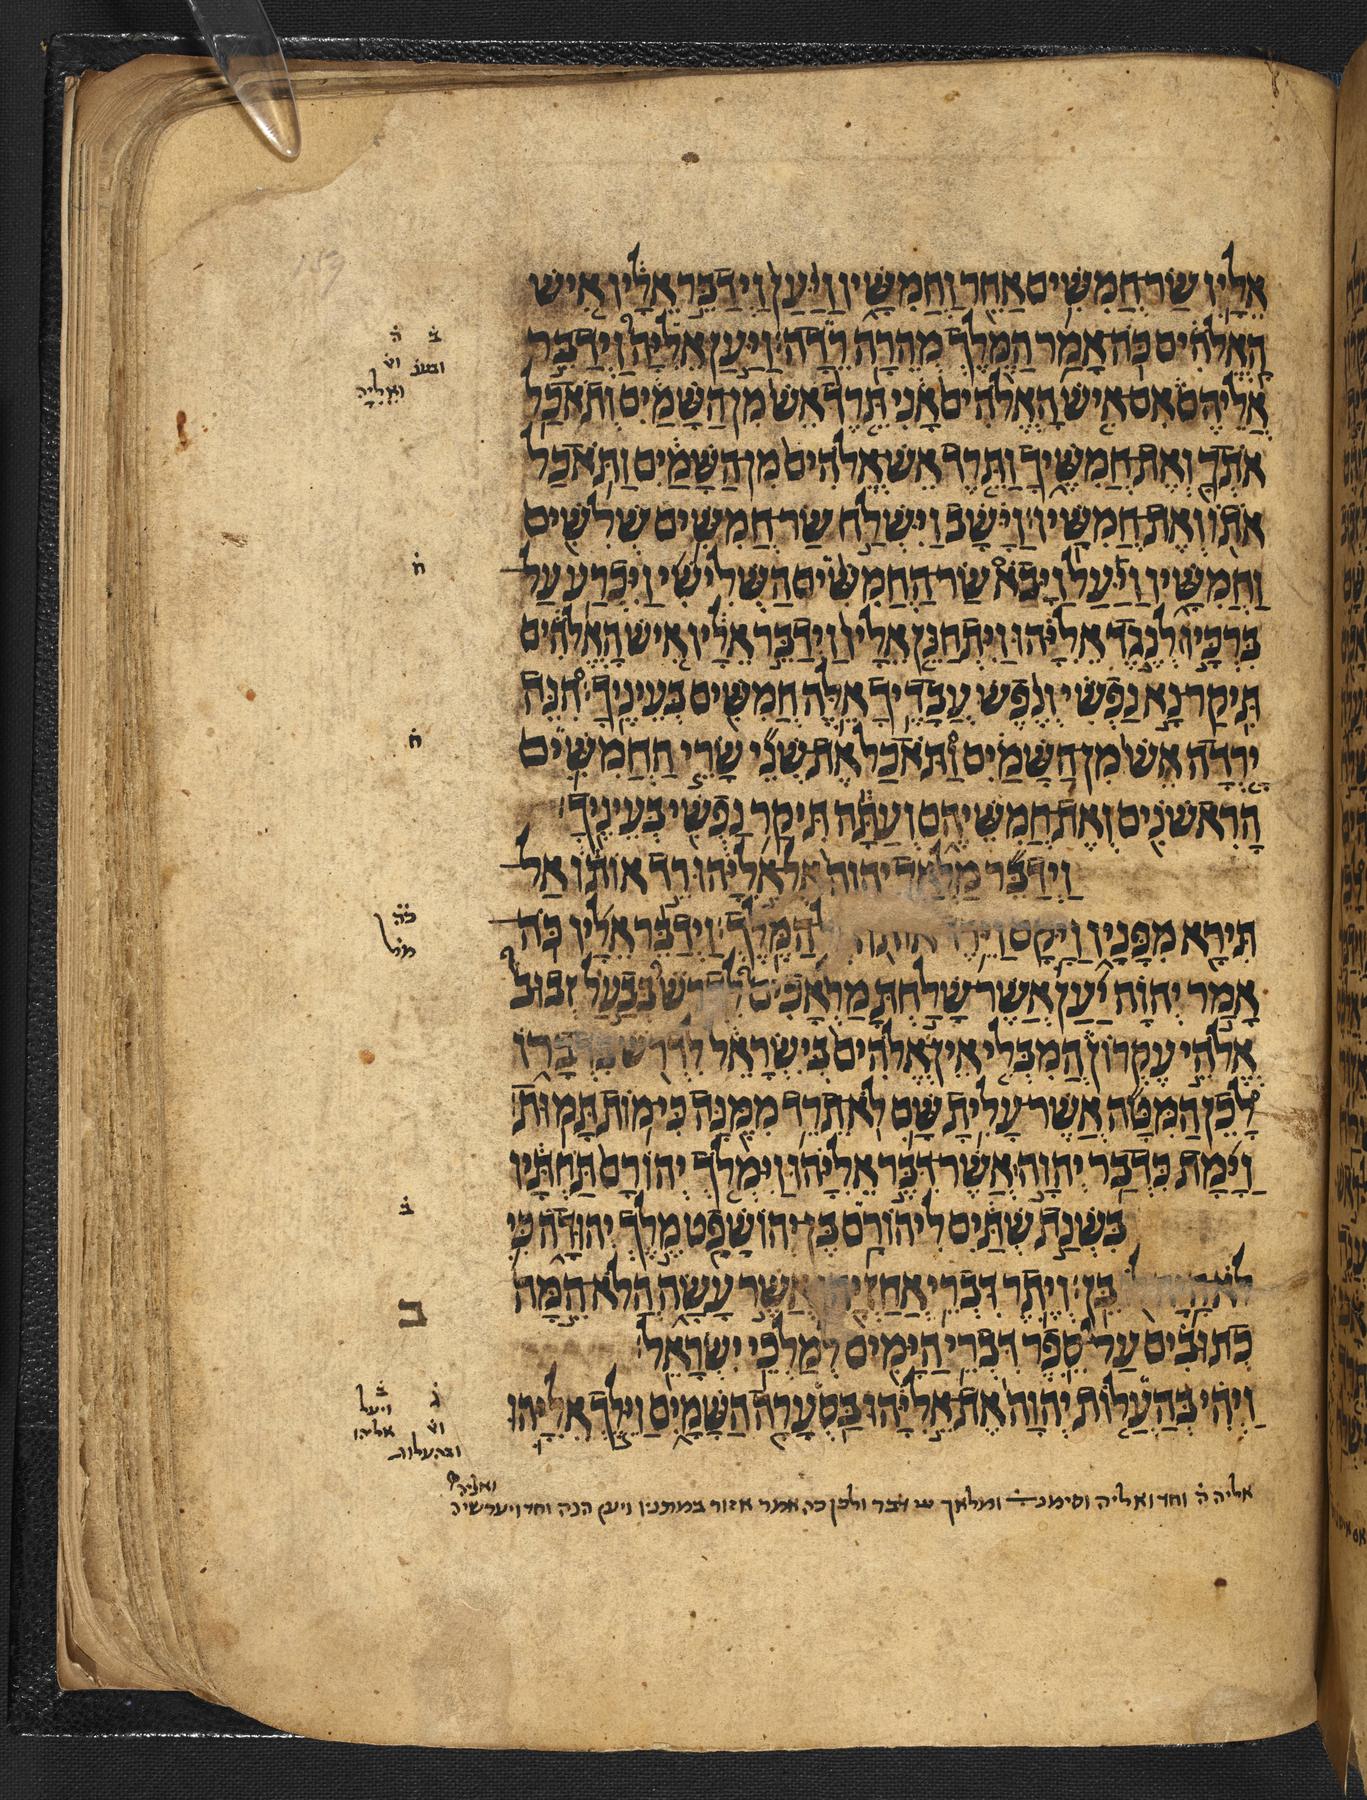 אֵלָיו שַׂר חֲמִשִּׁים אַחֵר וַחֲמִשָּׁיו וַיַּעַן וַיְדַבֵּר אֵלָיו אִישׁ
הָאֱלֹהִים כֹּה אָמַר הַמֶּלֶךְ מְהֵרָה רֵדָה׃ וַיַּעַן אֵלִיָּה וַיְדַבֵּר
אֲלֵיהֶם אִם אִישׁ הָאֱלֹהִים אָנִי תֵּרֶד אֵשׁ מִן הַשָּׁמַיִם וְתֹאכַל
אֹתְךָ וְאֶת חֲמִשֶּׁיךָ וַתֵּרֶד אֵשׁ אֱלֹהִים מִן הַשָּׁמַיִם וַתֹּאכַל
אֹתוֹ וְאֶת חֲמִשָּׁיו׃ וַיָּשָׁב וַיִּשְׁלַח שַׂר חֲמִשִּׁים שְׁלִשִׁים
וַחֲמִשָּׁיו וַיַּעַל וַיָּבֹא שַׂר הַחֲמִשִּׁים הַשְּׁלִישִׁי וַיִּכְרַע עַל
בִּרְכָּיו לְנֶגֶד אֵלִיָּהוּ וַיִּתְחַנֵּן אֵלָיו וַיְדַבֵּר אֵלָיו אִישׁ הָאֱלֹהִים
תִּיקַר נָא נַפְשִׁי וְנֶפֶשׁ עֲבָדֶיךָ אֵלֶּה חֲמִשִּׁים בְּעֵינֶיךָ׃ הִנֵּה
יָרְדָה אֵשׁ מִן הַשָּׁמַיִם וַתֹּאכַל אֶת שְׁנֵי שָׂרֵי הַחֲמִשִּׁים
הָרִאשֹׁנִים וְאֶת חֲמִשֵּׁיהֶם וְעַתָּה תִּיקַר נַפְשִׁי בְּעֵינֶיךָ׃
וַיְדַבֵּר מַלְאַךְ יהוה אֶל אֵלִיָּהוּ רֵד אוֹתוֹ אַל
תִּירָא מִפָּנָיו וַיָּקָם וַיֵּרֶד אוֹתוֹ הַמֶּלֶךְ׃ וַיְדַבֵּר אֵלָיו כֹּה
אָמַר יְהוָה יַעַן אֲשֶׁר שָׁלַחְתָּ מַלְאָכִים לִדְרֹשׁ בְּבַעַל זְבוּב
אֱלֹהֵי עֶקְרוֹן הֲמִבְּלִי אֵין אֱלֹהִים בְּיִשְׂרָאֵל לִדְרֹשׁ בִּדְבָרוֹ
לָכֵן הַמִּטָּה אֲשֶׁר עָלִיתָ שָּׁם לֹא תֵרֵד מִמֶּנָּה כִּי מוֹת תָּמוּת׃
וַיָּמָת כִּדְבַר יְהוָה אֲשֶׁר דִּבֶּר אֵלִיָּהוּ וַיִּמְלֹךְ יְהוֹרָם תַּחְתָּיו
בִּשְׁנַת שְׁתַּיִם לִיהוֹרָם בֶּן יְהוֹשָׁפָט מֶלֶךְ יְהוּדָה כִּי
לֹא הָיָה לוֹ בֵּן׃ וְיֶתֶר דִּבְרֵי אֲחַזְיָהוּ אֲשֶׁר עָשָׂה הֲלֹא הֵמָּה
כְתוּבִים עַל סֵפֶר דִּבְרֵי הַיָּמִים לְמַלְכֵי יִשְׂרָאֵל׃
וַיְהִי בְּהַעֲלוֹת יְהוָה אֶת אֵלִיָּהוּ בַּסְעָרָה הַשָּׁמָיִם וַיֵּלֶךְ אֵלִיָּהוּ
אליה ה̇ וחד ואליה ומלאך דבר ולכן כה אמר אזור במתניו ויען הנה וחד
ב̇ ה̇
ואליה
ח̇
ח̇
ב̇
ב
ג̇ ב̇
ויעל
אליהו
ובהעלות
159